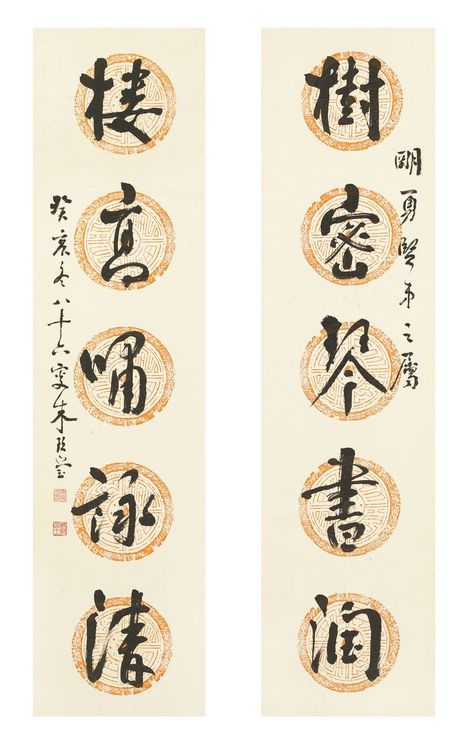 樹密琴書潤
明勇賢弟之屬
樓高嘯詠清
癸亥冬八十六叟朱玖瑩